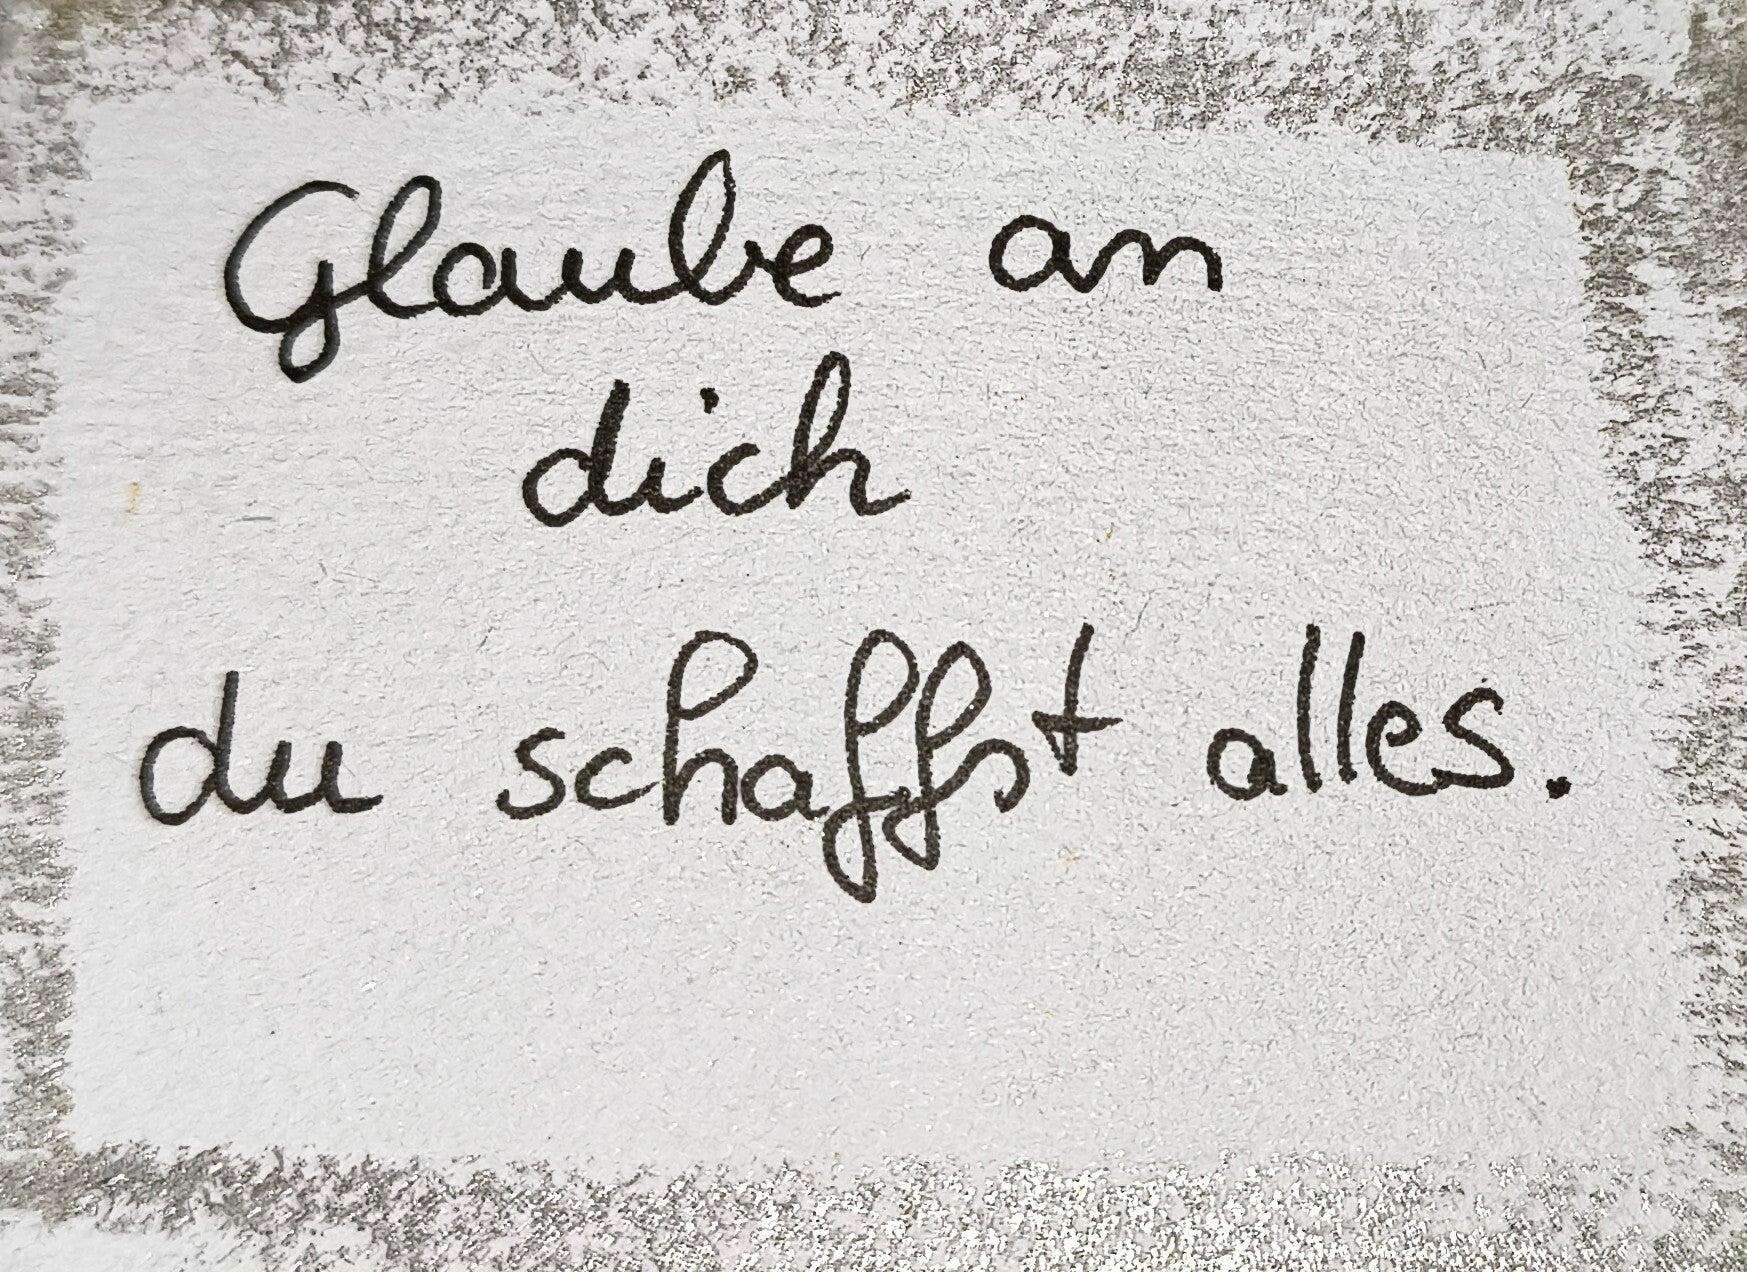 Glaube an
dich
du schaffst alles.